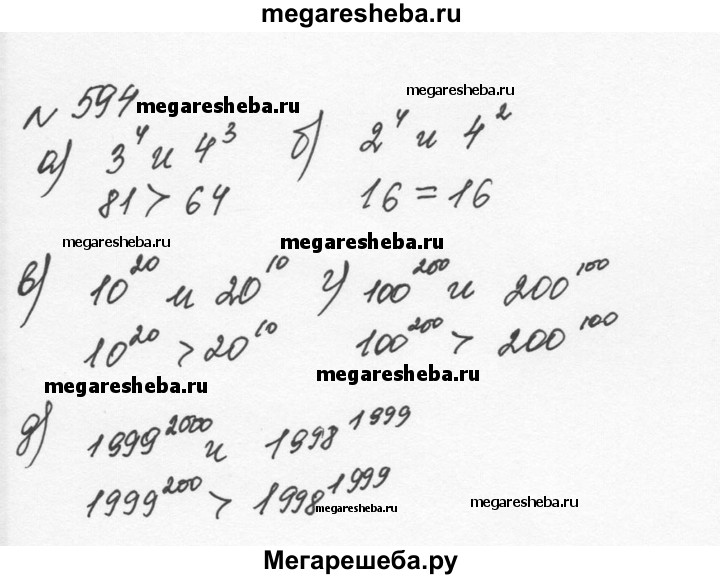 megaresheba.ru
№ 594 megaresheba.ru megaresheba.ru
а) 3⁴ и 4³ б) 2⁴ и 4²
81 > 64 16 = 16
megaresheba.ru megaresheba.ru
в) 10²⁰ и 20¹⁰ г) 100²⁰⁰ и 200¹⁰⁰
10²⁰ > 20¹⁰ 100²⁰⁰ > 200¹⁰⁰
megaresheba.ru megaresheba.ru
д) 1999²⁰⁰⁰ и 1998¹⁹⁹⁹
1999²⁰⁰ > 1998¹⁹⁹⁹
megaresheba.ru megaresheba.ru
Мегарешеба.ру